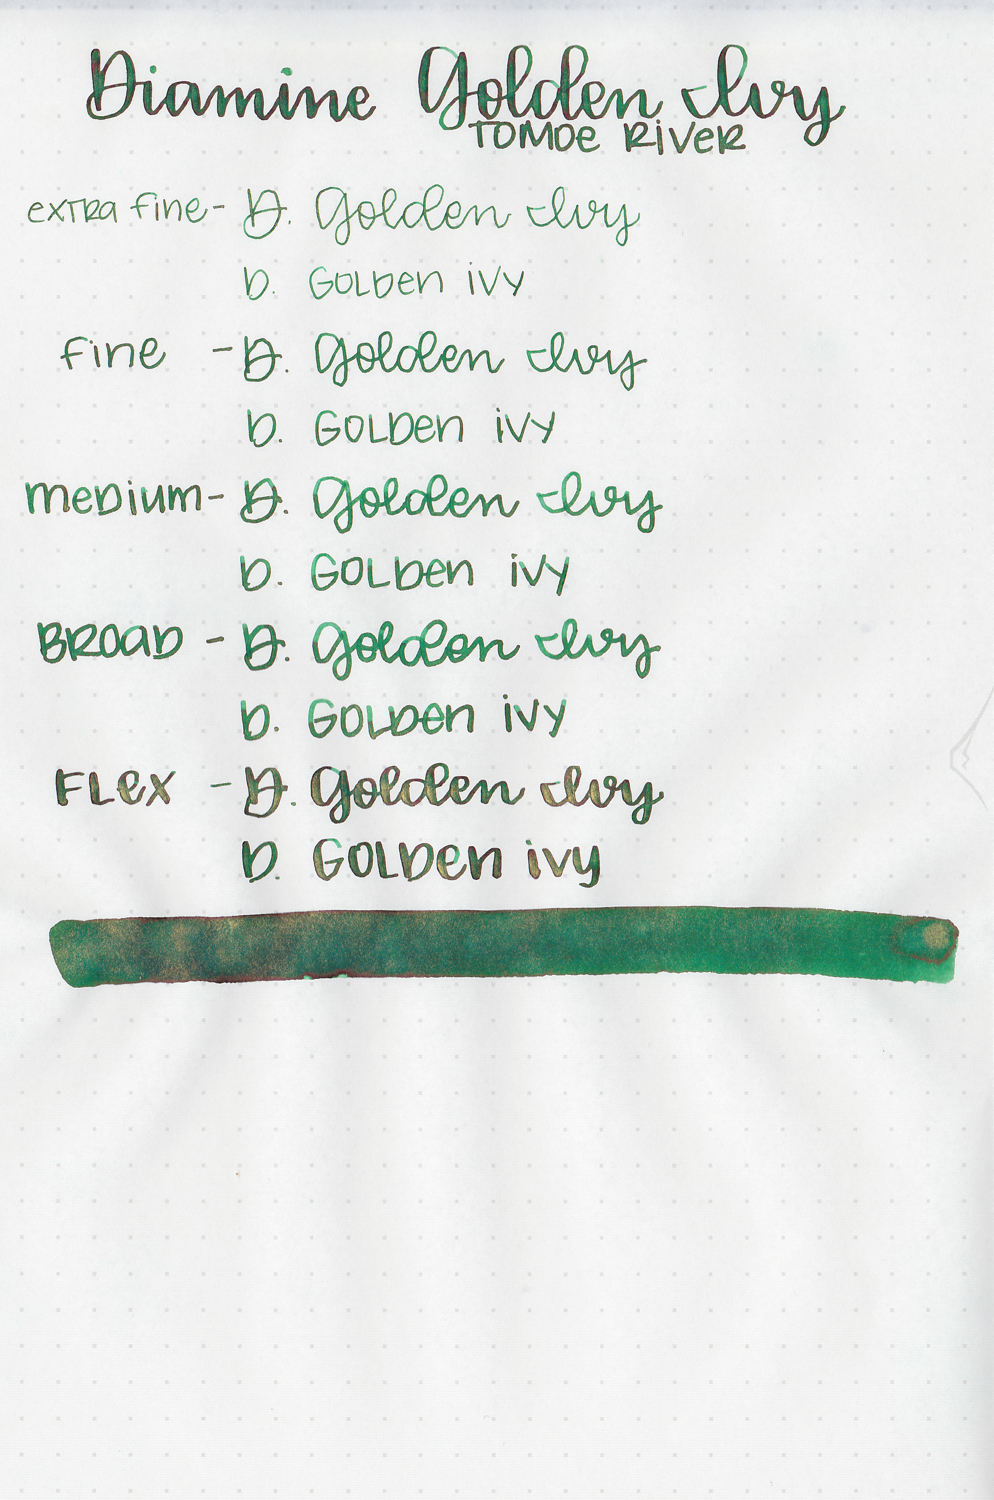 Diamine Golden Ivy
TOMOE RIVER
extra fine - D. Golden Ivy
D. GOLDen ivy
fine - D. Golden Ivy
D. GOLDen ivy
meDium - D. Golden Ivy
D. GOLDen ivy
BROAD - D. Golden Ivy
D. GOLDen ivy
FLex - D. Golden Ivy
D. GOLDen ivy